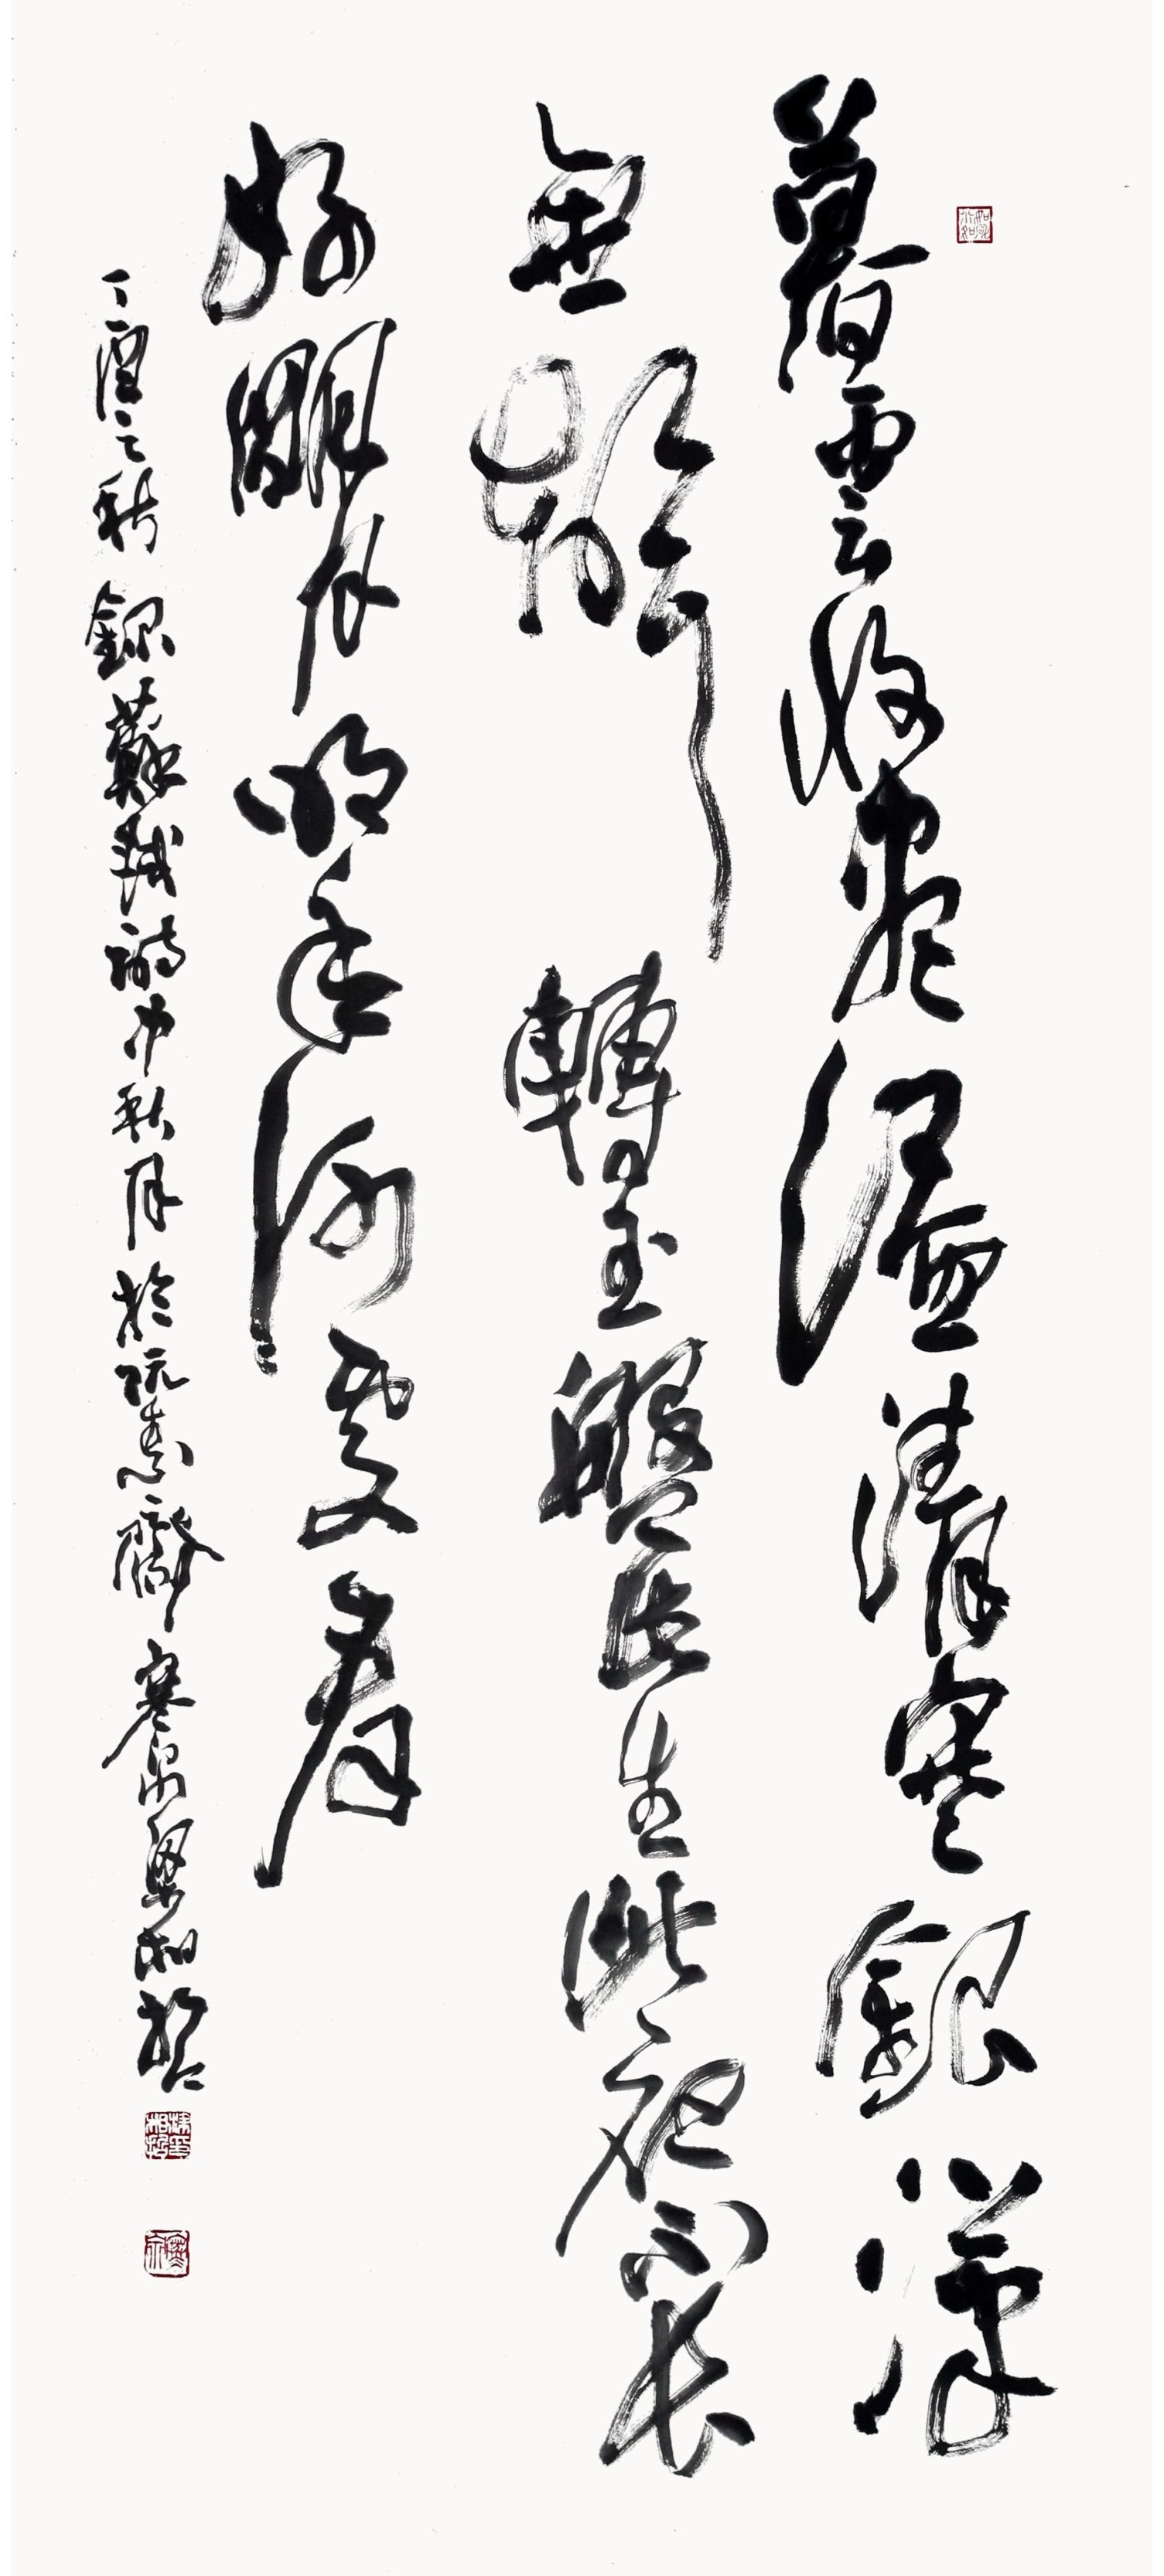 暮雲收盡溢清寒銀漢
無聲轉玉盤此生此夜不長
好明月明年何處看
丁酉之秋錄蘇軾詩中秋月於齋